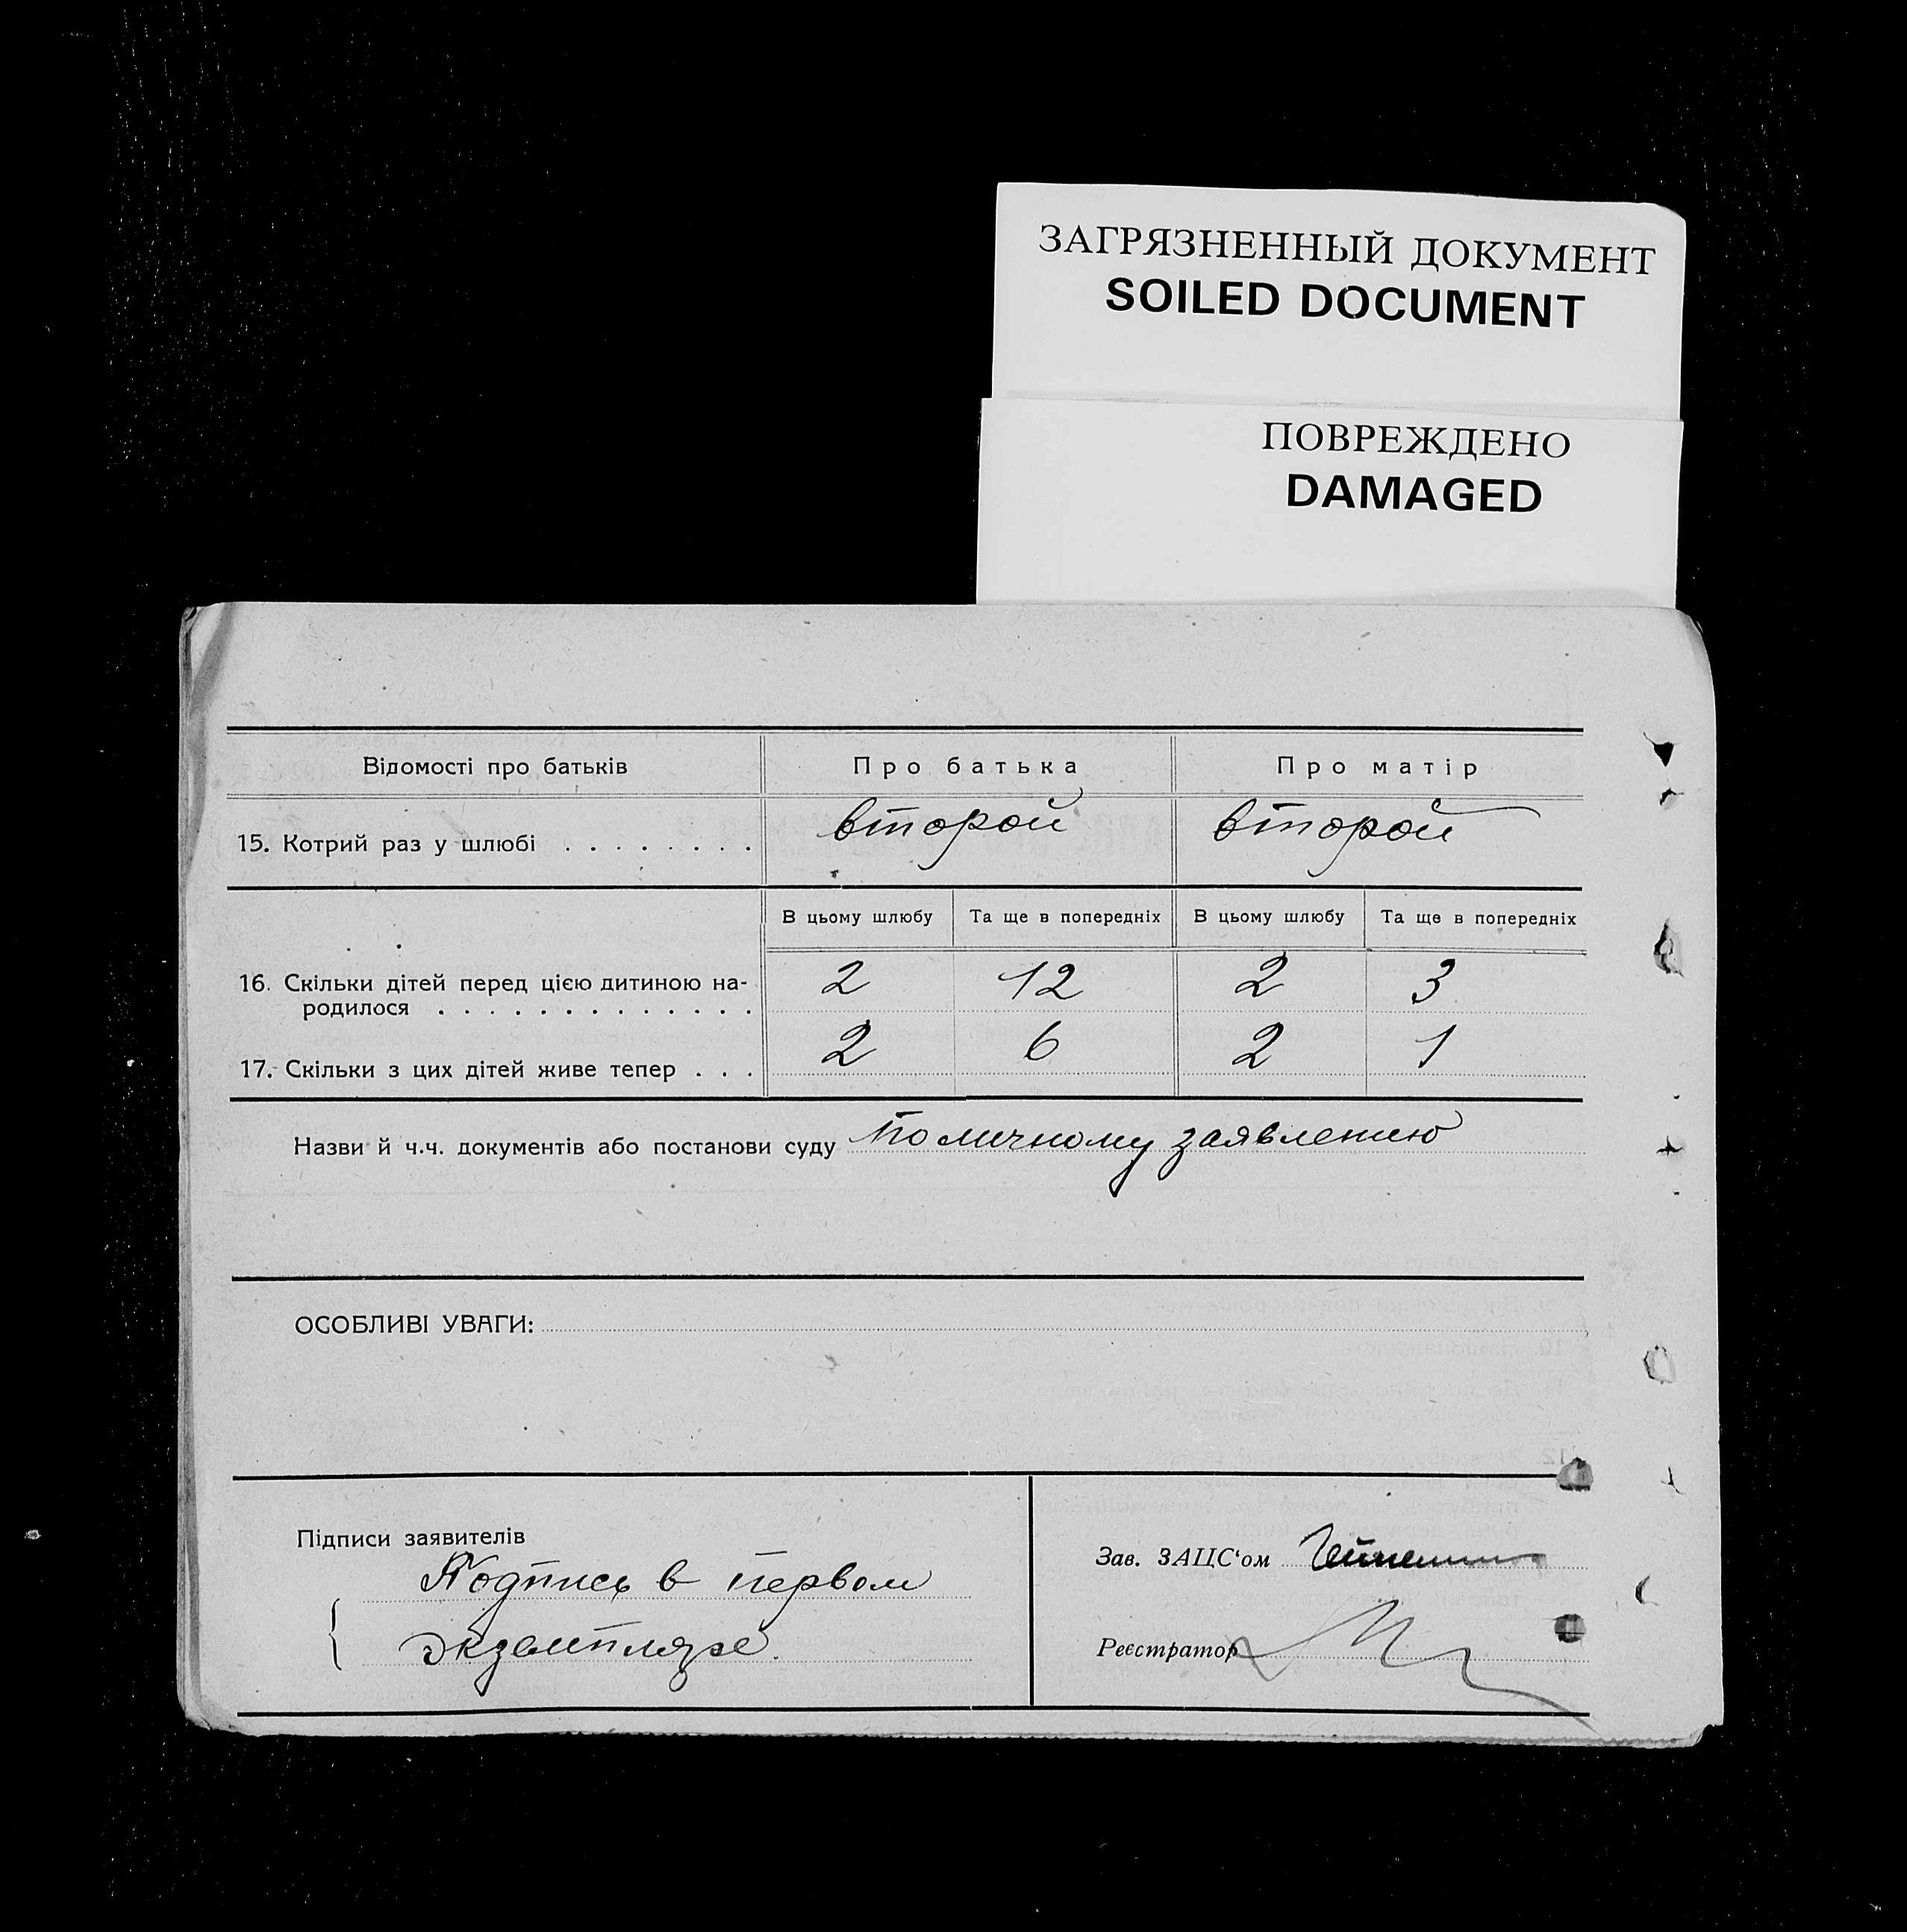 ЗАГРЯЗНЕННЫЙ ДОКУМЕНТ
SOILED DOCUMENT
ПОВРЕЖДЕНО
DAMAGED
Відомості про батьків Про батька Про матір
15. Котрий раз у шлюбі . . . . . . . . второй второй
В цьому шлюбу Та ще в попередніх В цьому шлюбу Та ще в попередніх
16. Скільки дітей перед цією дитиною на-
родилося . . . . . . . . . . . . . 2 12 2 3
17. Скільки з цих дітей живе тепер . . . 2 6 2 1
Назви й ч.ч. документів або постанови суду По личному заявлению
ОСОБЛИВІ УВАГИ:
Підписи заявителів
Подпись в первом
экземпляре.
Зав. ЗАЦС‘ом
Реєстратор